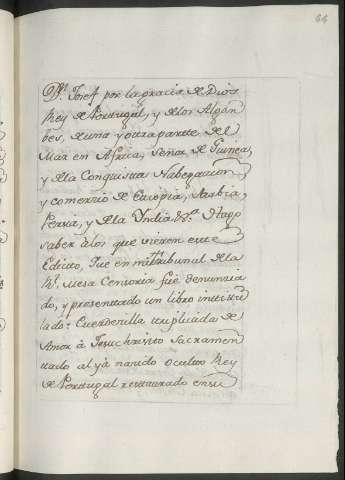 44
Dn. Josef por la gracia de Dios
Rey de Portugal, y de los Algar
bes, de una y otra parte del
Mar en Africa, Señor de Guinea,
y de la Conquista Nabegacion,
y comercio de Etiopia, Arabia,
Persia, y de la Yndia &a. Hago
saber a los que vieren este
Edicto, Que en mi tribunal de la
Rl. mesa Censoria fue denuncia
do, y presentado un libro intitu
lado: Cuerdecilla triplicada de
Amor à Jesuchristo Sacramen
tado al yà nacido oculto Rey
de Portugal restaurado en su